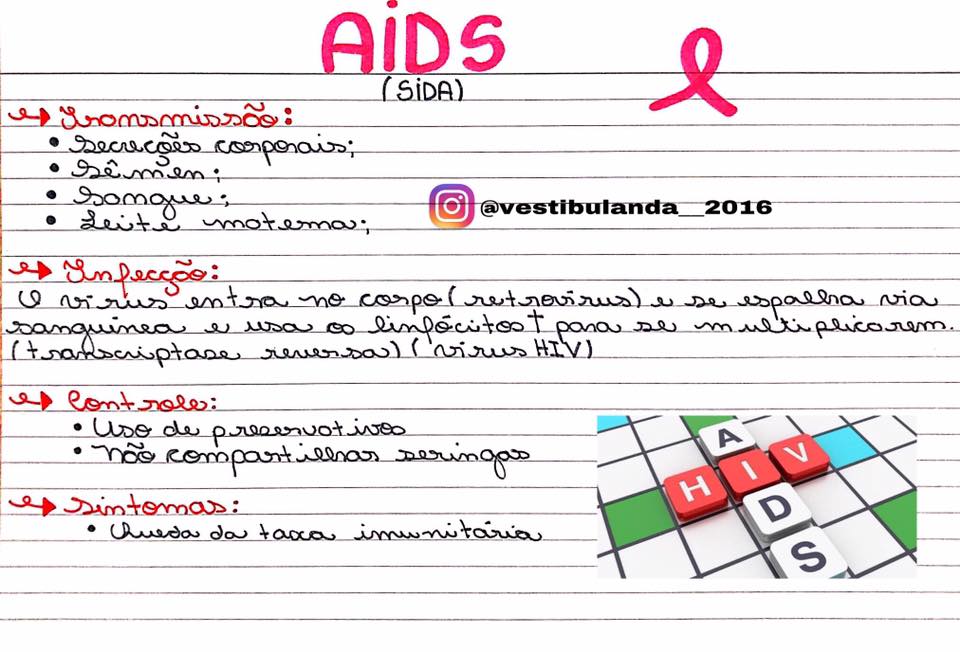 AiDS
(SiDA)
Transmissão:
• Secreções corporais;
• Sêmen;
• Sangue;
• Leite materna;
@vestibulanda__2016
Infecção:
O vírus entra no corpo (retrovírus) e se espalha via
sanguínea e usa os linfócitos T para se multiplicarem.
(transcriptase reversa) (vírus HIV)
Controle:
• Uso de preservativos
• Não compartilhar seringas
A
HIV
D
S
Sintomas:
• Queda da taxa imunitária